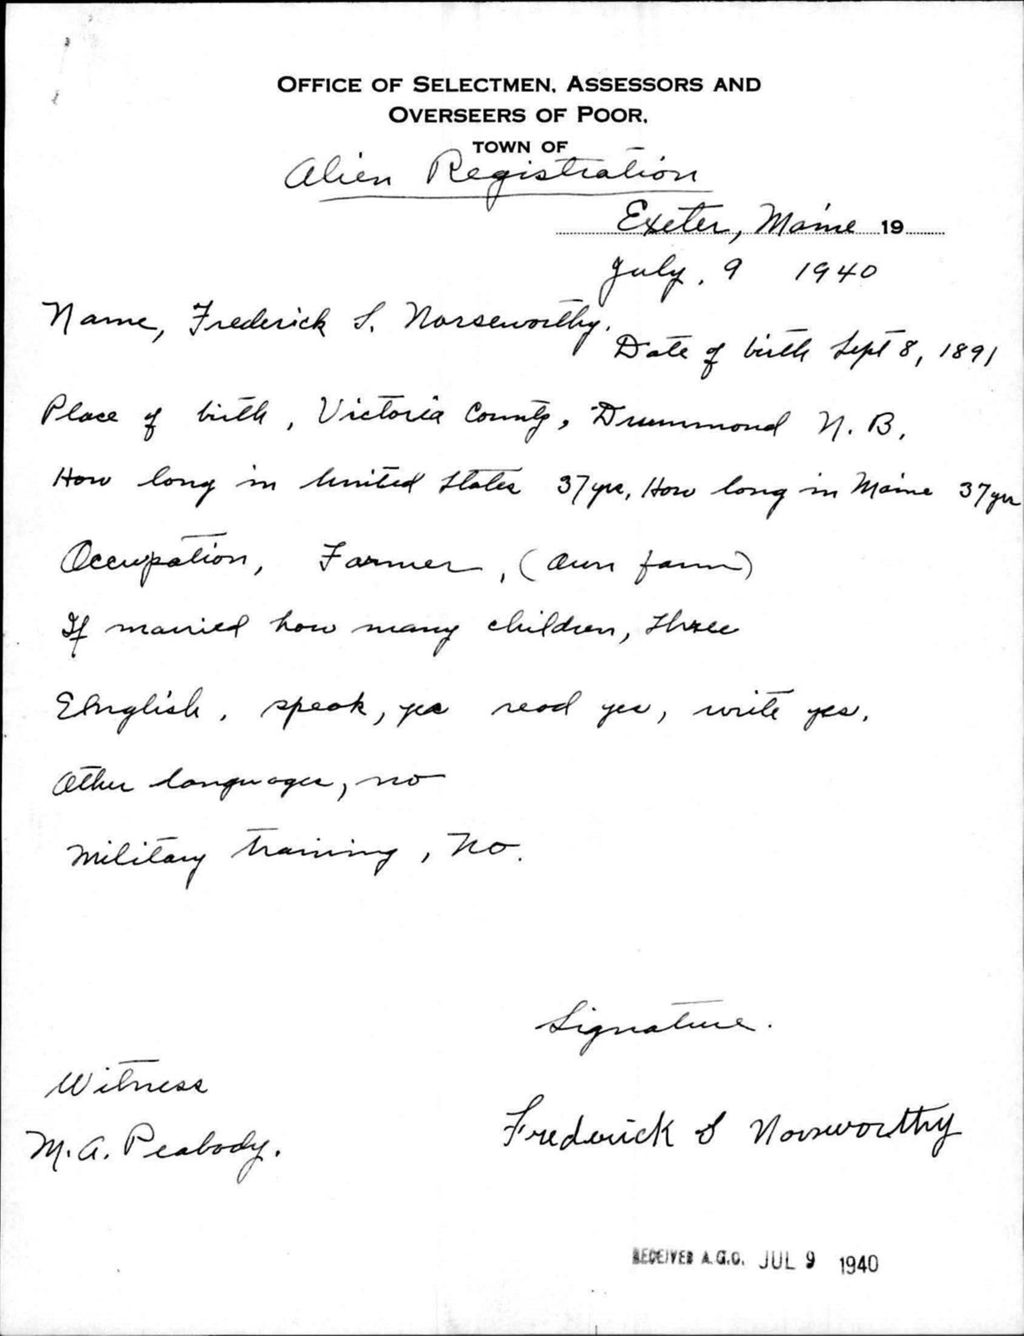 OFFICE OF SELECTMEN, ASSESSORS AND
OVERSEERS OF POOR,
TOWN OF
Alien Registration
Exeter, Maine 19
July, 9 1940
Name, Frederick S. Norseworthy.
Date of birth Sept 8, 1891
Place of birth, Victoria County, Drummond N. B.
How long in United States 37 yrs, How long in Maine 37 yrs
Occupation, Farmer, (own farm)
If married how many children, three
English, speak, yes read yes, write yes.
Other languages, no
Military training, No.
Signature.
Witness
M. A. Peabody.
Frederick S Norsworthy
RECEIVED A.G.O. JUL 9 1940